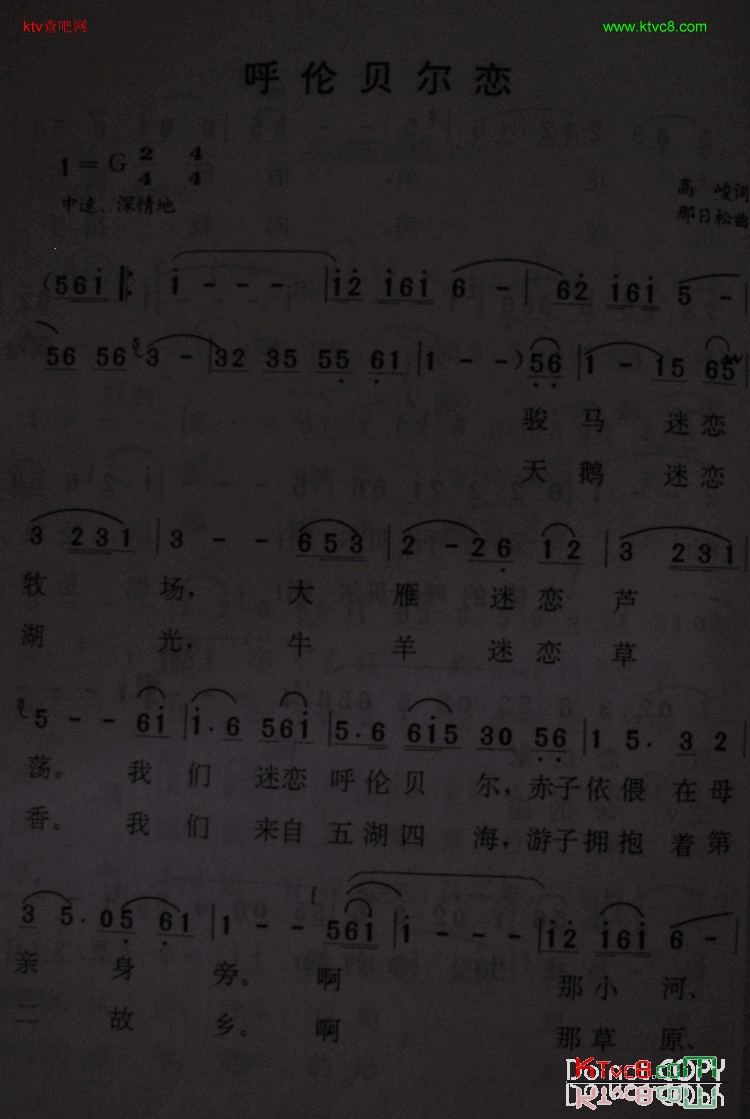 ktv查吧网
www.ktvc8.com
呼伦贝尔恋
1=G 2/4 4/4
中速、深情地
高 峻词
那日松曲
(561̇ |: 1̇ - - - | 1̇2̇ 1̇61̇ 6 - | 62̇ 1̇61̇ 5 - |
56 56 3 - | 32 35 55 61 | 1 - - ) 56 | 1 - 15 65 |
骏 马 迷 恋
天 鹅 迷 恋
3 231 | 3 - - 653 | 2 - 26 12 | 3 231 |
牧 场, 大 雁 迷 恋 芦
湖 光, 牛 羊 迷 恋 草
5 - - 61̇ | 1̇. 6 561̇ | 5. 6 61̇5 30 56 | 1 5. 3 2
荡。 我 们 迷恋 呼伦贝 尔,赤子依偎 在母
香。 我 们 来自 五湖四 海,游子拥抱 着第
3 5. 05 61 | 1 - - 561̇ | 1̇ - - - | 1̇2̇ 1̇61̇ 6 - |
亲 身 旁。 啊 那小 河、
二 故 乡。 啊 那草 原、
KTvc8.com
DO NOT COPY